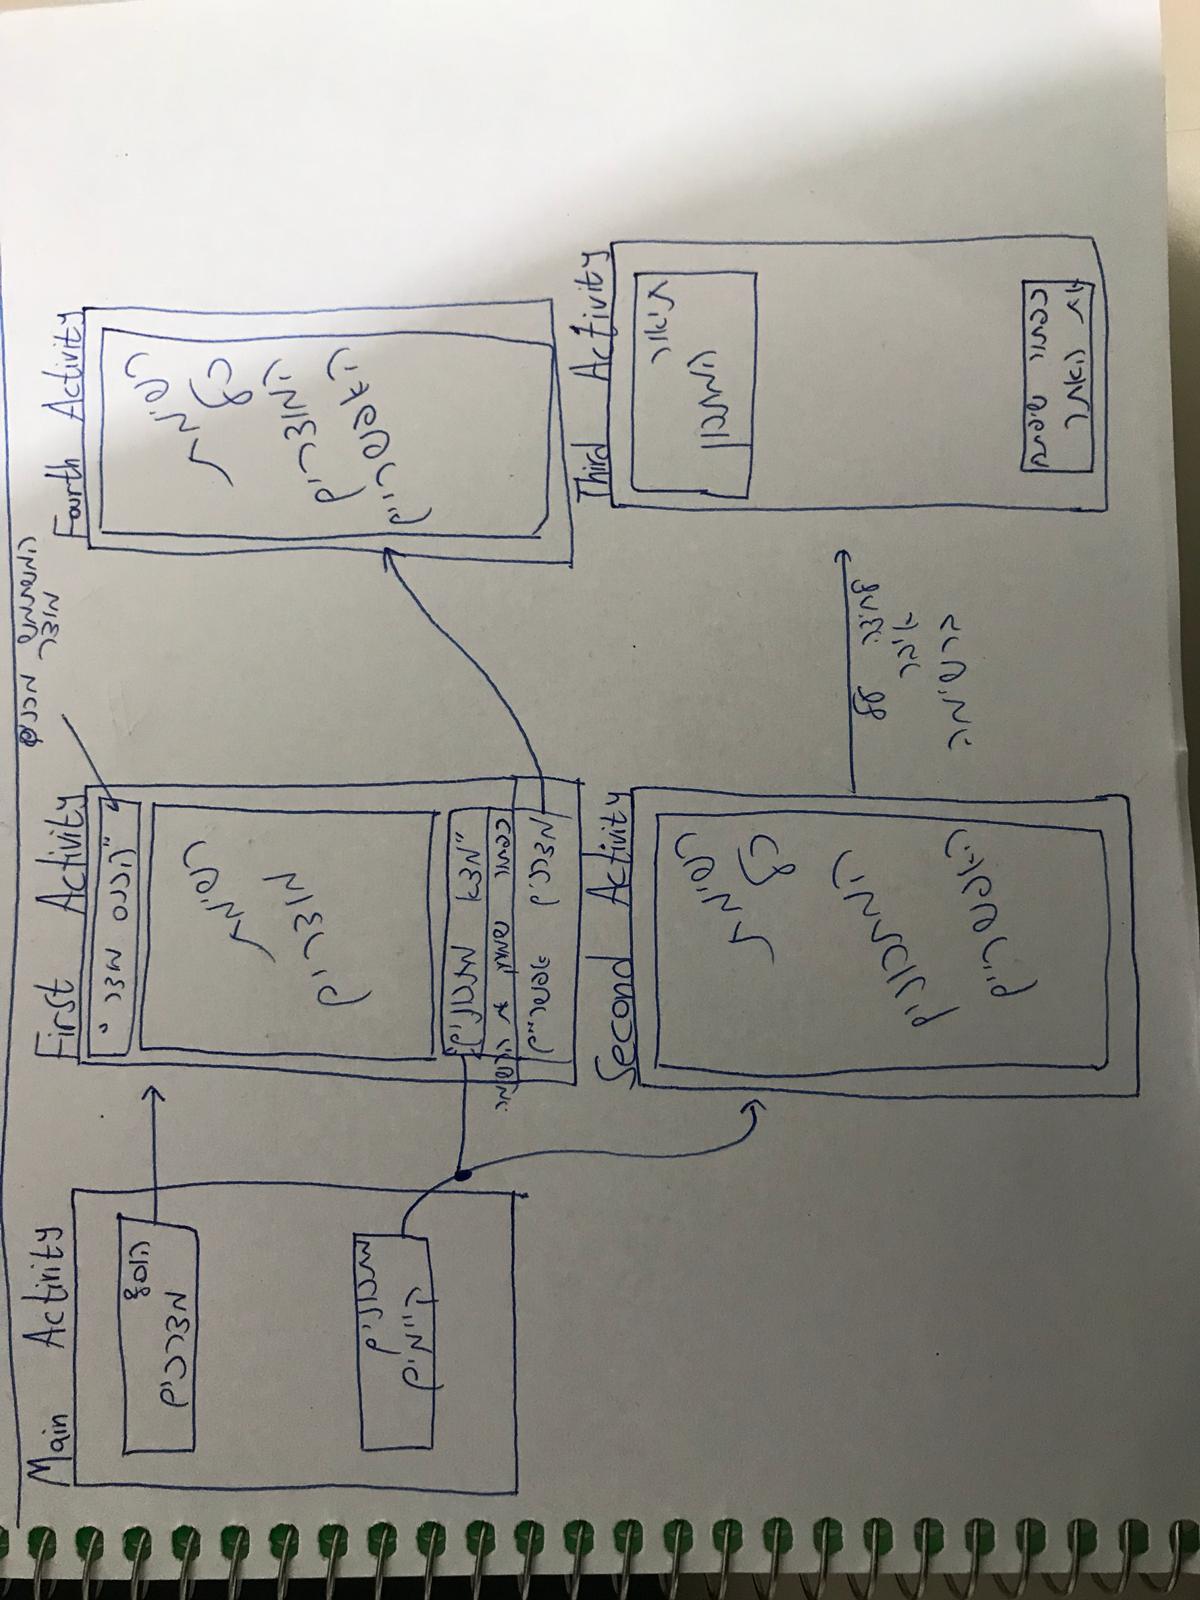 Main Activity
הוסף
מצרכים
מתכונים
קיימים
First Activity
המשתמש מכניס
מוצר
"הכנס מוצר"
רשימת
מוצרים
"מצא מתכונים
כפתור שמוחק את הרשימה
מצרכים אפשריים
Fourth Activity
רשימת
כל
המוצרים
האפשריים
Second Activity
רשימת
כל
המתכונים
האפשריים
לחיצה על
איבר
ברשימה
Third Activity
תיאור
המתכון
כפתור שיפתח
את האתר